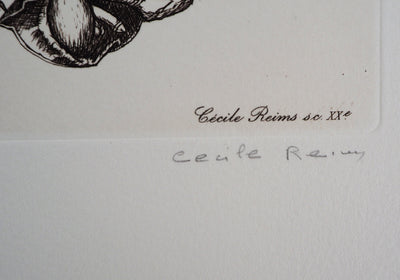 Cécile Reims sc. XXe
Cecile Reims